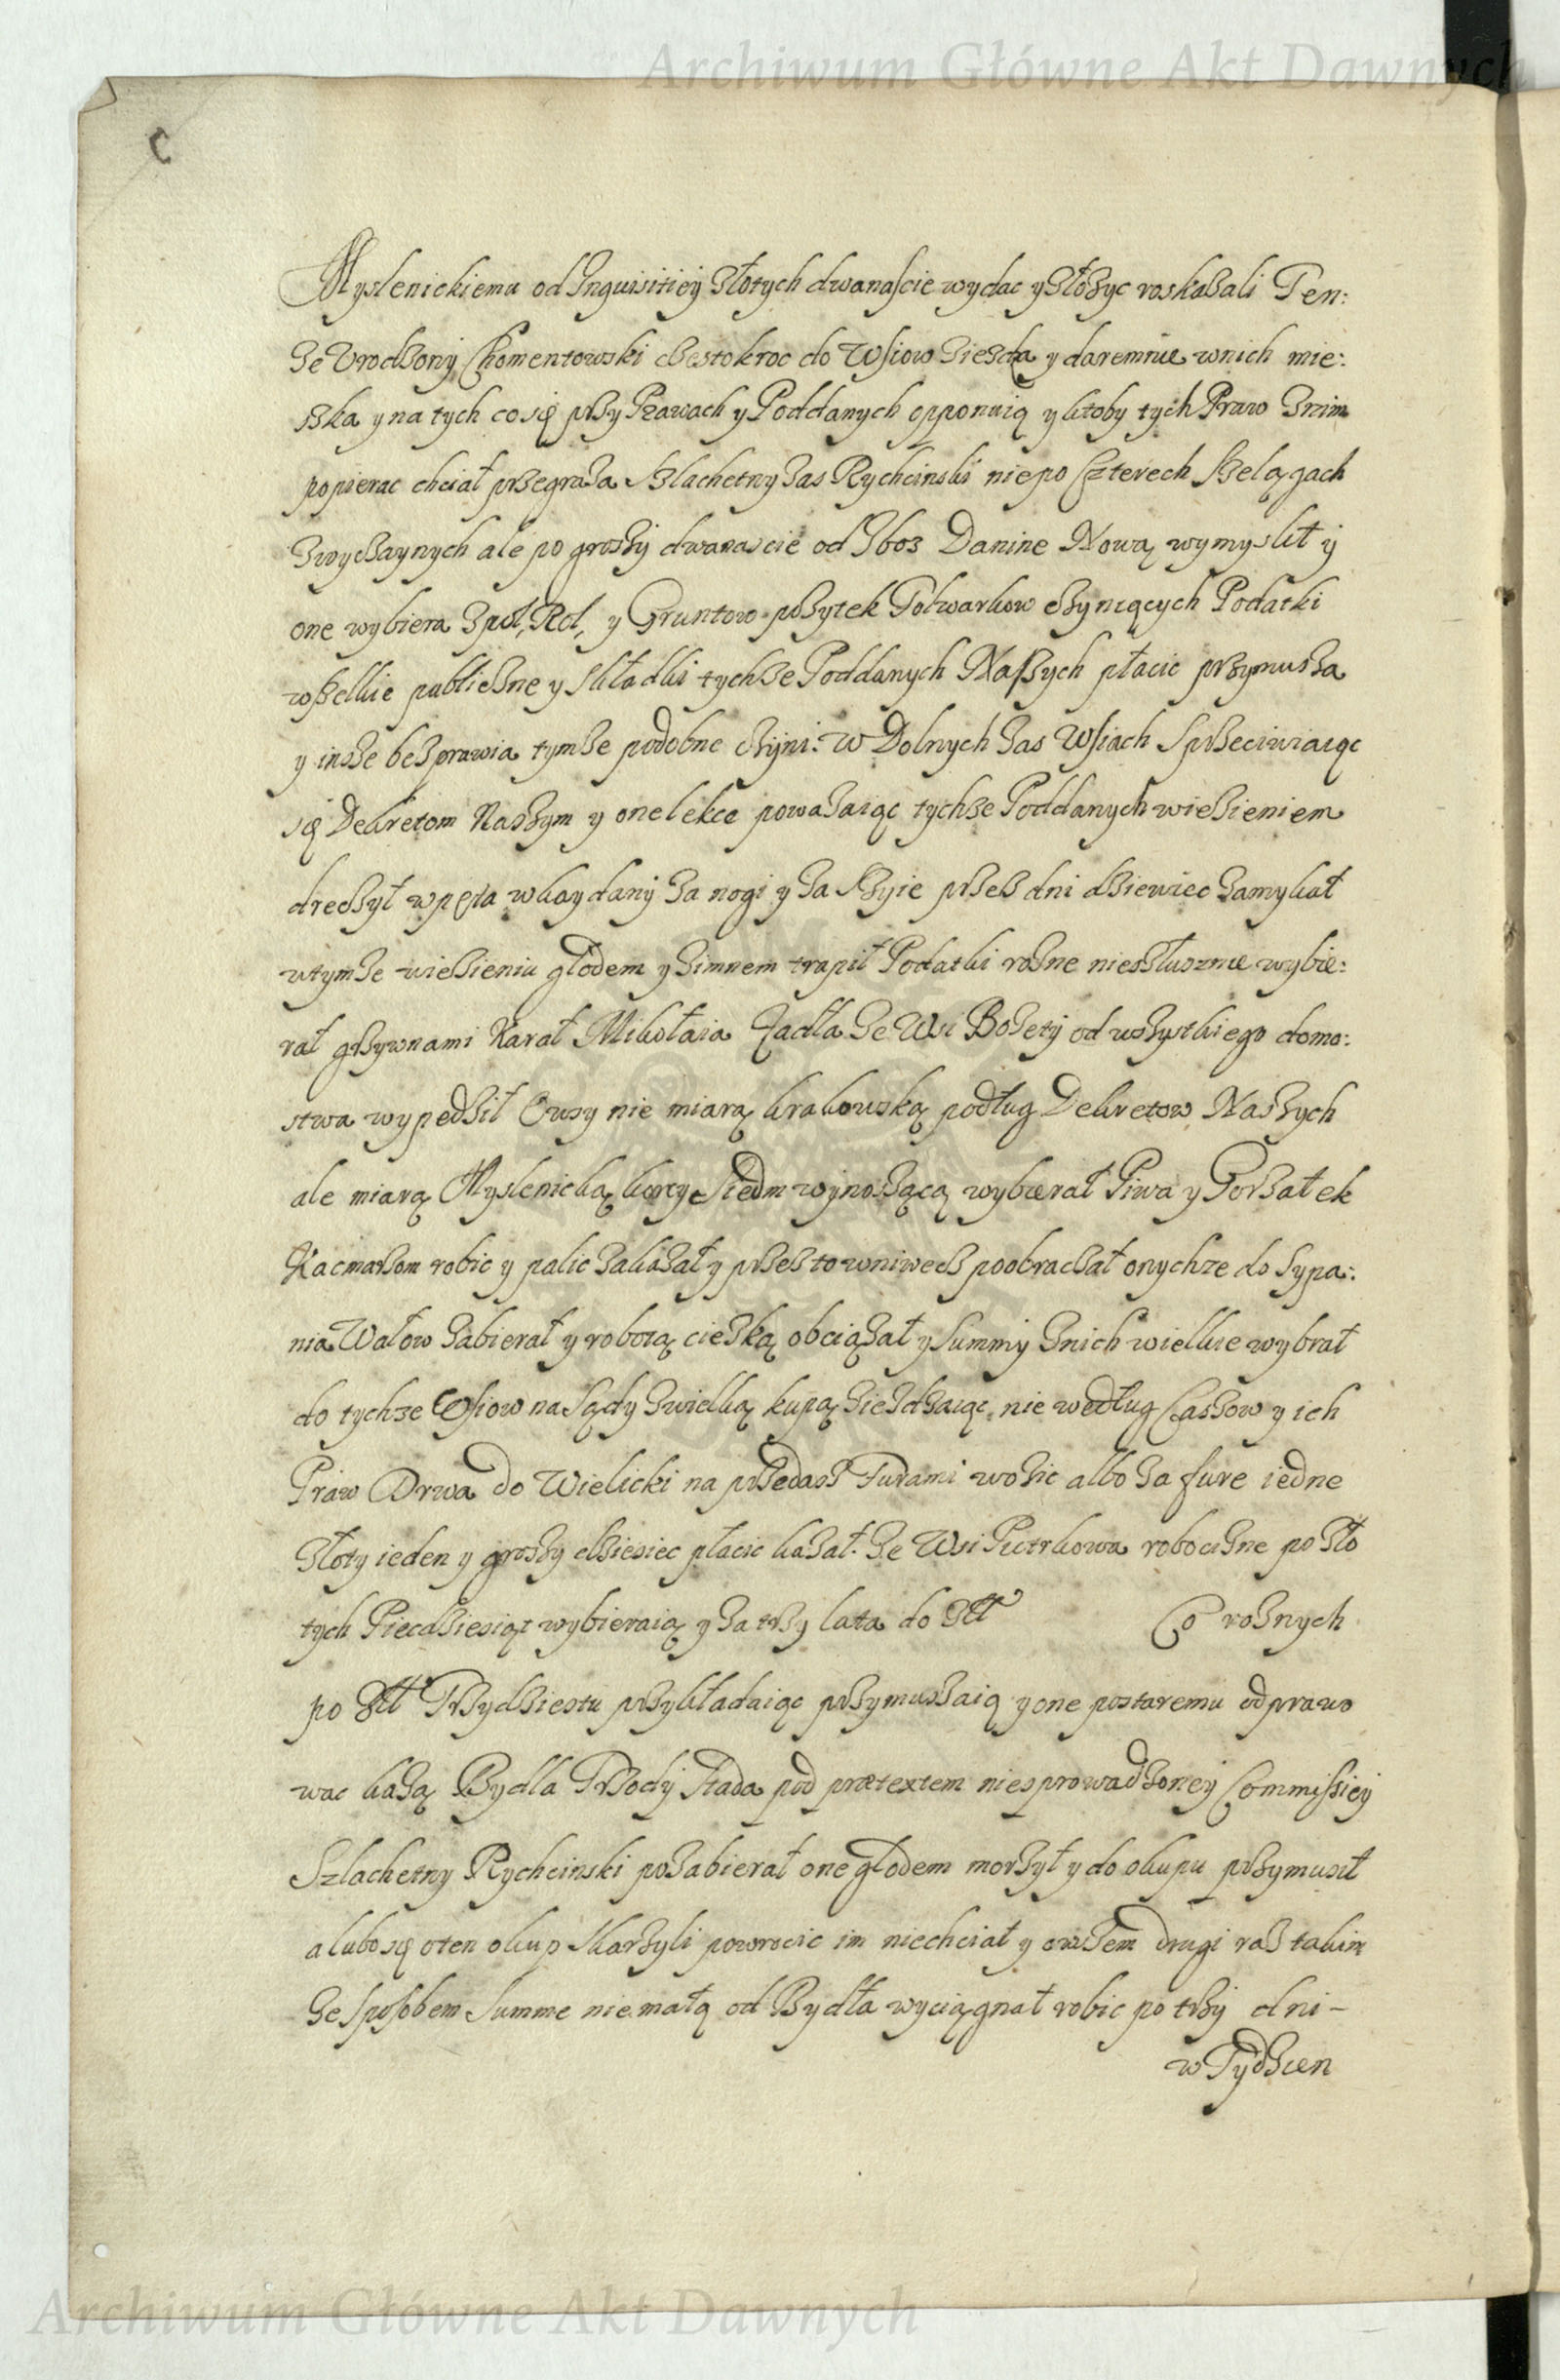 Archiwum Główne Akt Dawnych
C
Myslenickiemu od Inquisitiey złotych dwanascie wydac y złozyc roskazali Ten:
ze Vrodzony Chomentowski czestokroc do Wsiow ziezdza y daremnie w nich mie:
szka y na tych co się przy Prawach y Poddanych opponuią y ktoby tych Praw z nim
popierac chciał przegraza Szlachetny zas Rychcinski nie po Czterech Szelągach
zwyczaynych ale po groszy dwanascie od Zboz Danine Nową wymyslił y
one wybiera z pol, Rol, y Gruntow pozytek Folwarkow czyniących Podatki
wszelkie publiczne y składki tychze Poddanych Naszych płacic przymusza
y insze bezprawia tymze podobne czyni: W Dolnych zas Wsiach Sprzeciwiaiąc
się Dekretom Naszym y one lekce powazaiąc tychze Poddanych wiezieniem
dreczył w pęta w kaydany za nogi y za Szyie przez dni dziewiec zamykał
w tymze wiezieniu głodem y zimnem trapił Podatki rozne niesłusznie wybie:
rał grzywnami Karał Mikołaia Ządła ze Wsi Bozety od wszystkiego domo:
stwa wypedził Owsy nie miarą krakowską podług Dekretow Naszych
ale miarą Myslenicką korcy Siedm wynoszącą wybierał Piwa y Gorzałek
Kacmarzom robic y palic zakazał y przez to wniwecz poobraczał onychze do Sypa:
nia Wałow zabierał y robotą cieszką obciązał y Summy z nich wielkie wybrał
do tychze Wsiow na Sądy z wielką kupą ziezdzaiąc nie według Cassow y ich
Praw Drwa do Wielicki na przedasz Furami wozic albo za fure iedne
złoty ieden y groszy dziesiec płacic kazał. Ze Wsi Pietrkowa robocizne po zło
tych Piecdziesiąt wybieraią y za trzy lata do Złł Co roznych
po Złł Trzydziestu przykładaiąc przymuszaią y one postaremu odprawo
wac kazą Bydła Trzody Stada pod prætextem niesprowadzoney Commissiey
Szlachetny Rychcinski pozabierał one głodem morzył y do okupu przymusił
a lubo się o ten okup Skarzyli powrocic im niechciał y owszem drugi raz takim
ze sposobem Summe niemałą od Bydła wyciągnał robic po trzy dni -
w Tydzien
Archiwum Główne Akt Dawnych